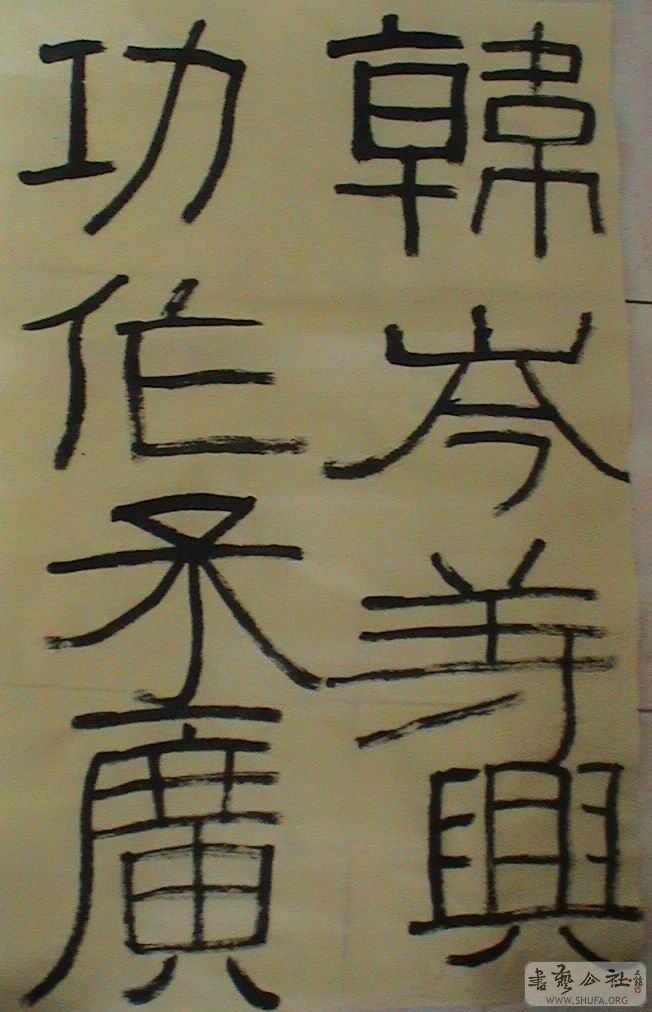 韓岑弟興
功作丞廣
書藝公社
WWW.SHUFA.ORG